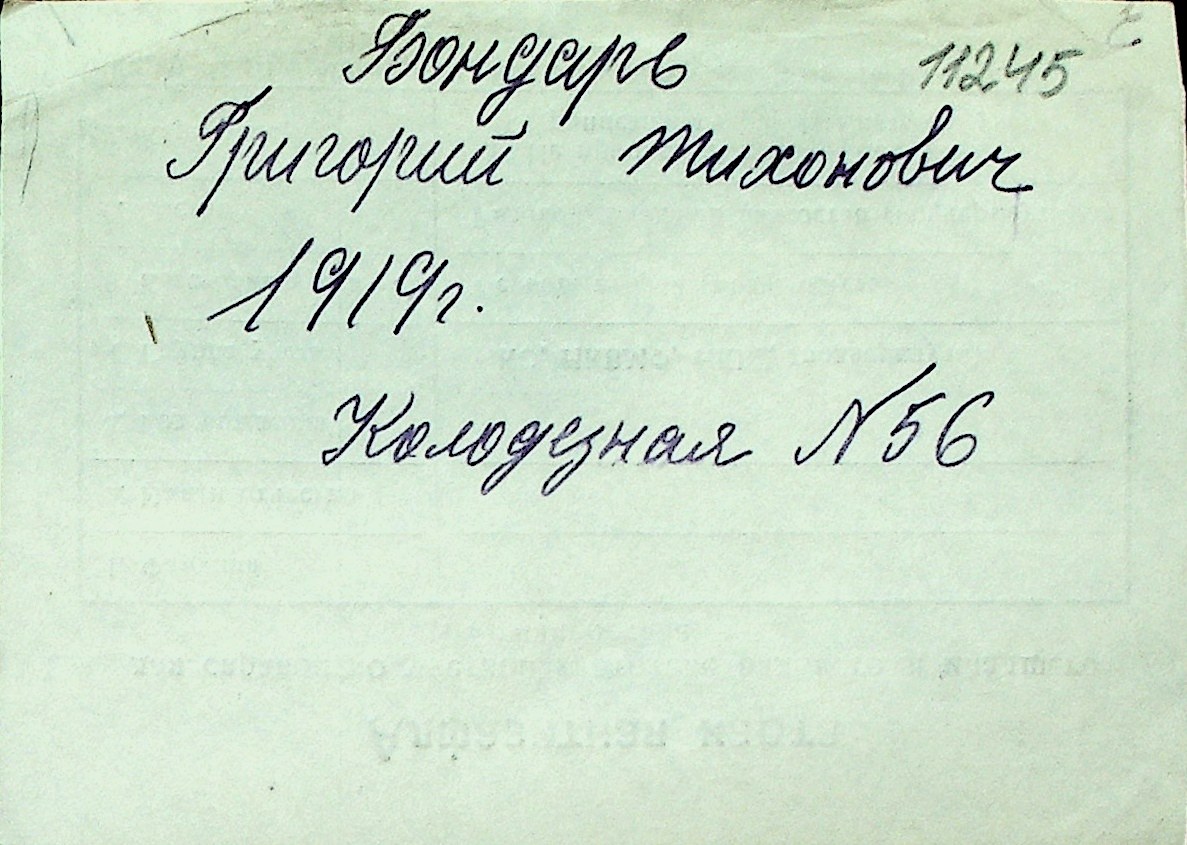 Бондарь 11245
Григорий Тихонович
1919г.
Колодезная №56